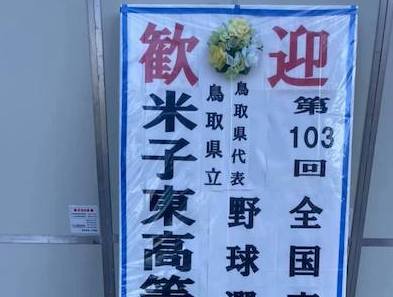 歓迎
第103回全国
鳥取県代表
野球選
鳥取県立
米子東高等